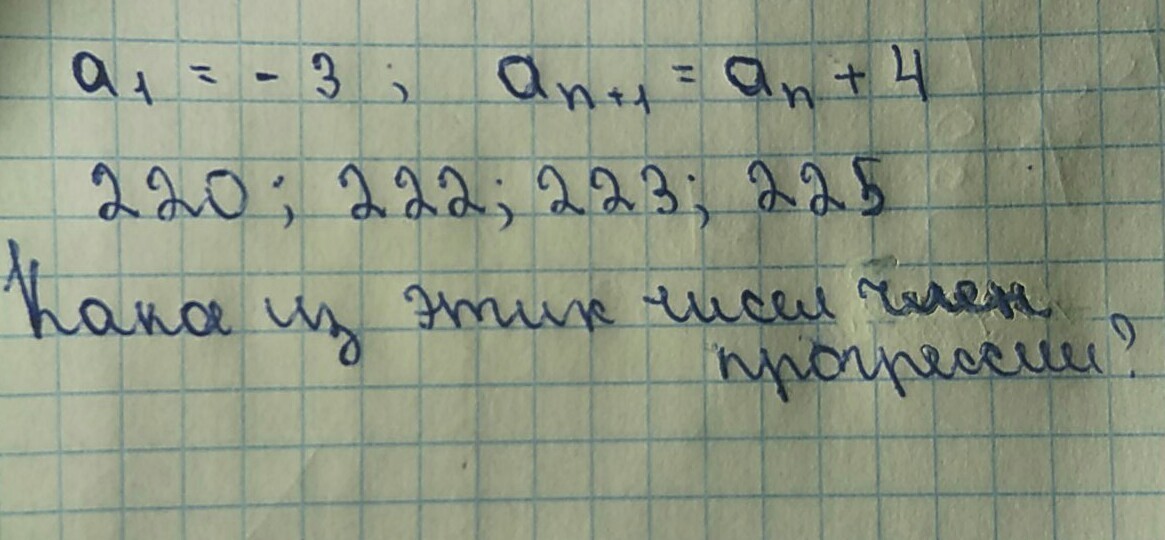 a₁ = - 3 ; aₙ₊₁ = aₙ + 4
220; 222; 223; 225
Какое из этих чисел член
прогрессии?